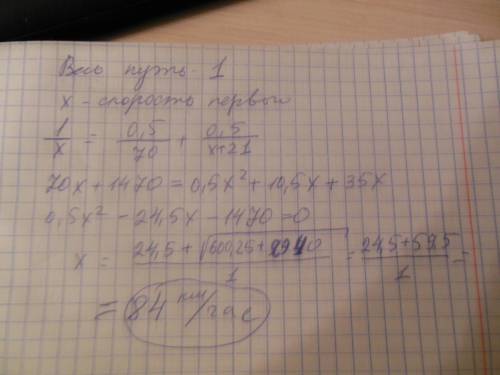 Весь путь - 1
x - скорость первого
1/x = 0,5/70 + 0,5/x+21
70x + 1470 = 0,5x² + 10,5x + 35x
0,5x² - 24,5x - 1470 = 0
x = 24,5 + √600,25 + 2940 / 1 = 24,5 + 59,5 / 1 =
= 84 км/час